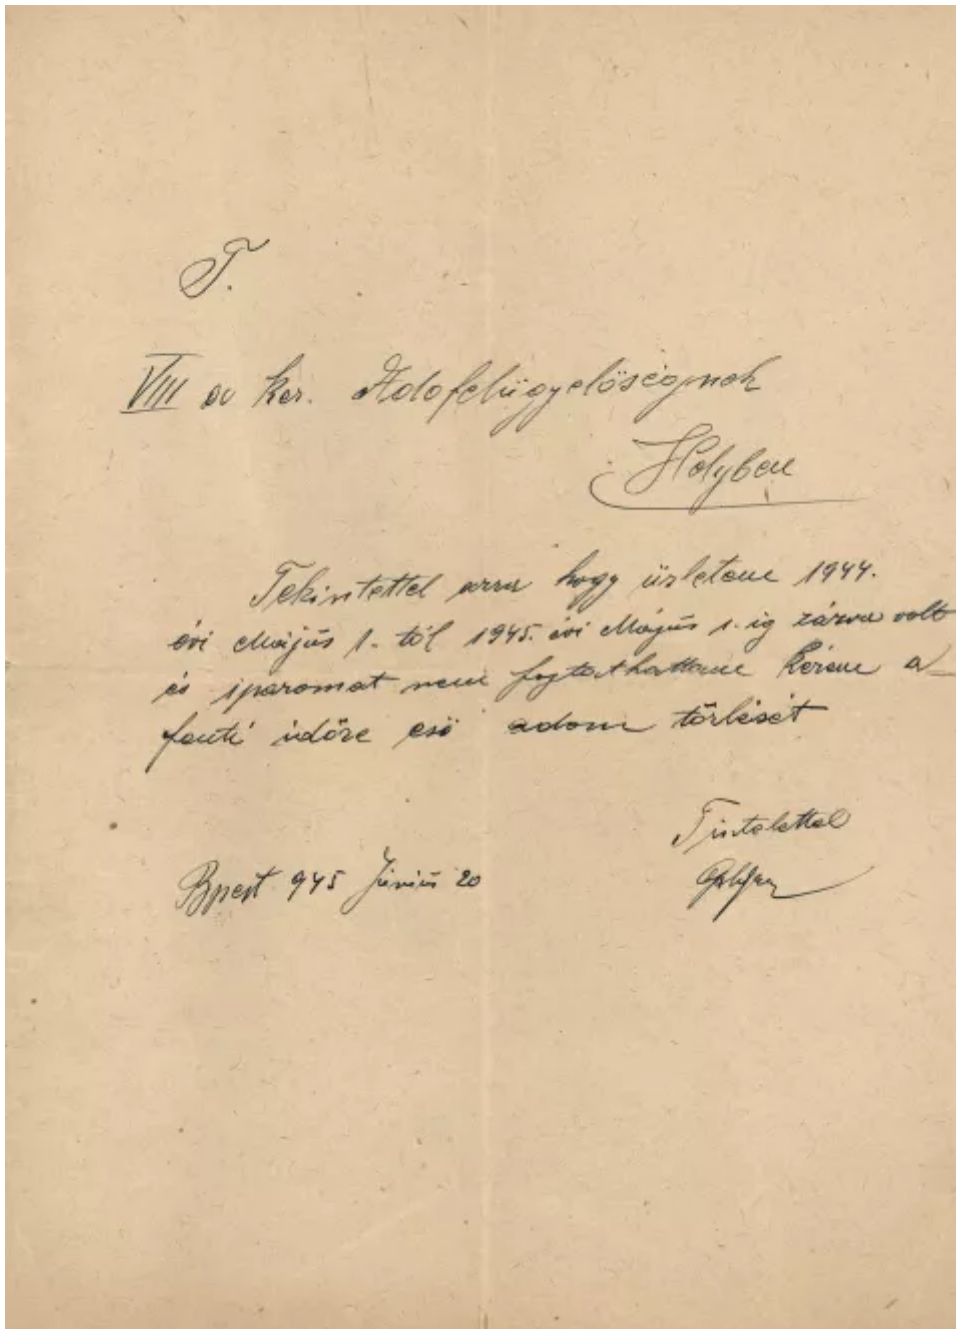 T.
VIII ik ker. Adofelügyelöségnek
Helyben
Tekintettel arra hogy üzletem 1944.
évi Május 1. től 1945. évi Május 1. ig zárva volt
és iparomat nem fojtathattam kérem a
fenti időre eső adom törlését
Tisztelettel
Bpest 945 Június 20